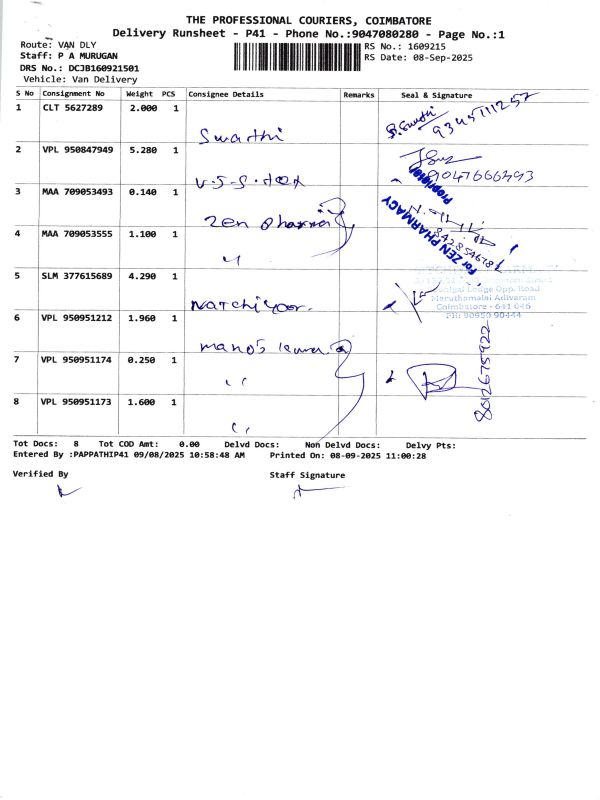 THE PROFESSIONAL COURIERS, COIMBATORE
Delivery Runsheet - P41 - Phone No.:9047080280 - Page No.:1
Route: VAN DLY
RS No.: 1609215
Staff: P A MURUGAN
RS Date: 08-Sep-2025
DRS No.: DCJB160921501
Vehicle: Van Delivery
S No Consignment No Weight PCS Consignee Details Remarks Seal & Signature
1 CLT 5627289 2.000 1 Swarthi
2 VPL 950847949 5.280 1 V.S.S.tex
3 MAA 709053493 0.140 1 Zen pharma
4 MAA 709053555 1.100 1 "
5 SLM 377615689 4.290 1 Natchiyar.
6 VPL 950951212 1.960 1
7 VPL 950951174 0.250 1 "
8 VPL 950951173 1.600 1 "
9345111257
9047666493
For ZEN PHARMACY
Proprietor
Lodge Opp. Road
Maruthamalai Adivaram
Coimbatore - 641 046
PH: 90950 90444
8012675922
Tot Docs: 8 Tot COD Amt: 0.00 Delvd Docs: Non Delvd Docs: Delvy Pts:
Entered By :PAPPATHIP41 09/08/2025 10:58:48 AM Printed On: 08-09-2025 11:00:28
Verified By Staff Signature